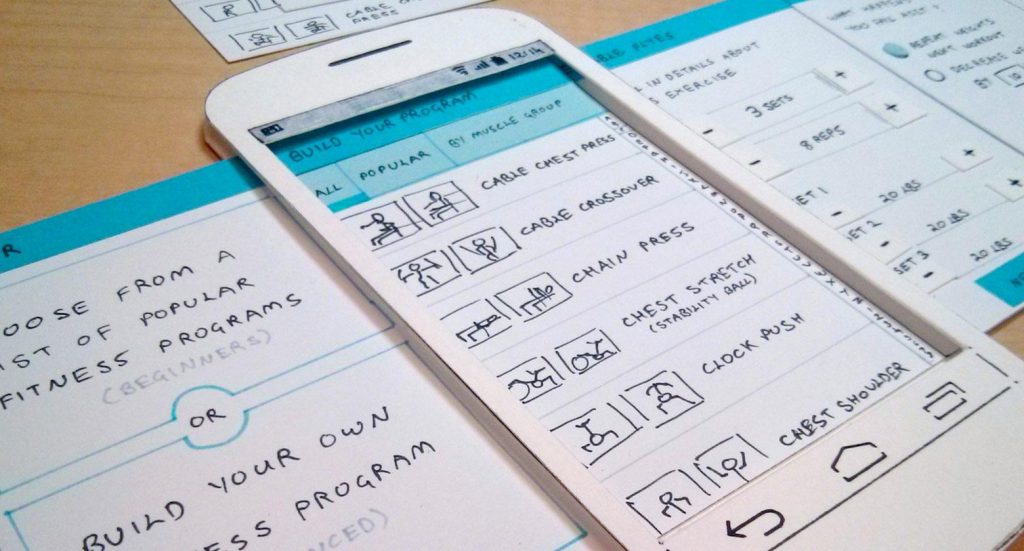 CABLE
PRESS
R
OOSE FROM A
IST OF POPULAR
FITNESS PROGRAMS
(BEGINNERS)
OR
BUILD YOUR OWN
ESS PROGRAM
NCED)
12:14
BUILD YOUR PROGRAM
ALL
POPULAR
BY MUSCLE GROUP
CABLE CHEST PRESS
CABLE CROSSOVER
CHAIN PRESS
CHEST STRETCH
(STABILITY BALL)
CLOCK PUSH
CHEST SHOULDER
BLE FLYES
IN DETAILS ABOUT
S EXERCISE
- 3 SETS +
- 8 REPS +
SET 1 - 20 LBS +
SET 2 - 20 LBS +
SET 3 - 20 LBS
YOU
REPEAT WEIGHTS
NEXT WORKOUT
DECREASE
BY 10